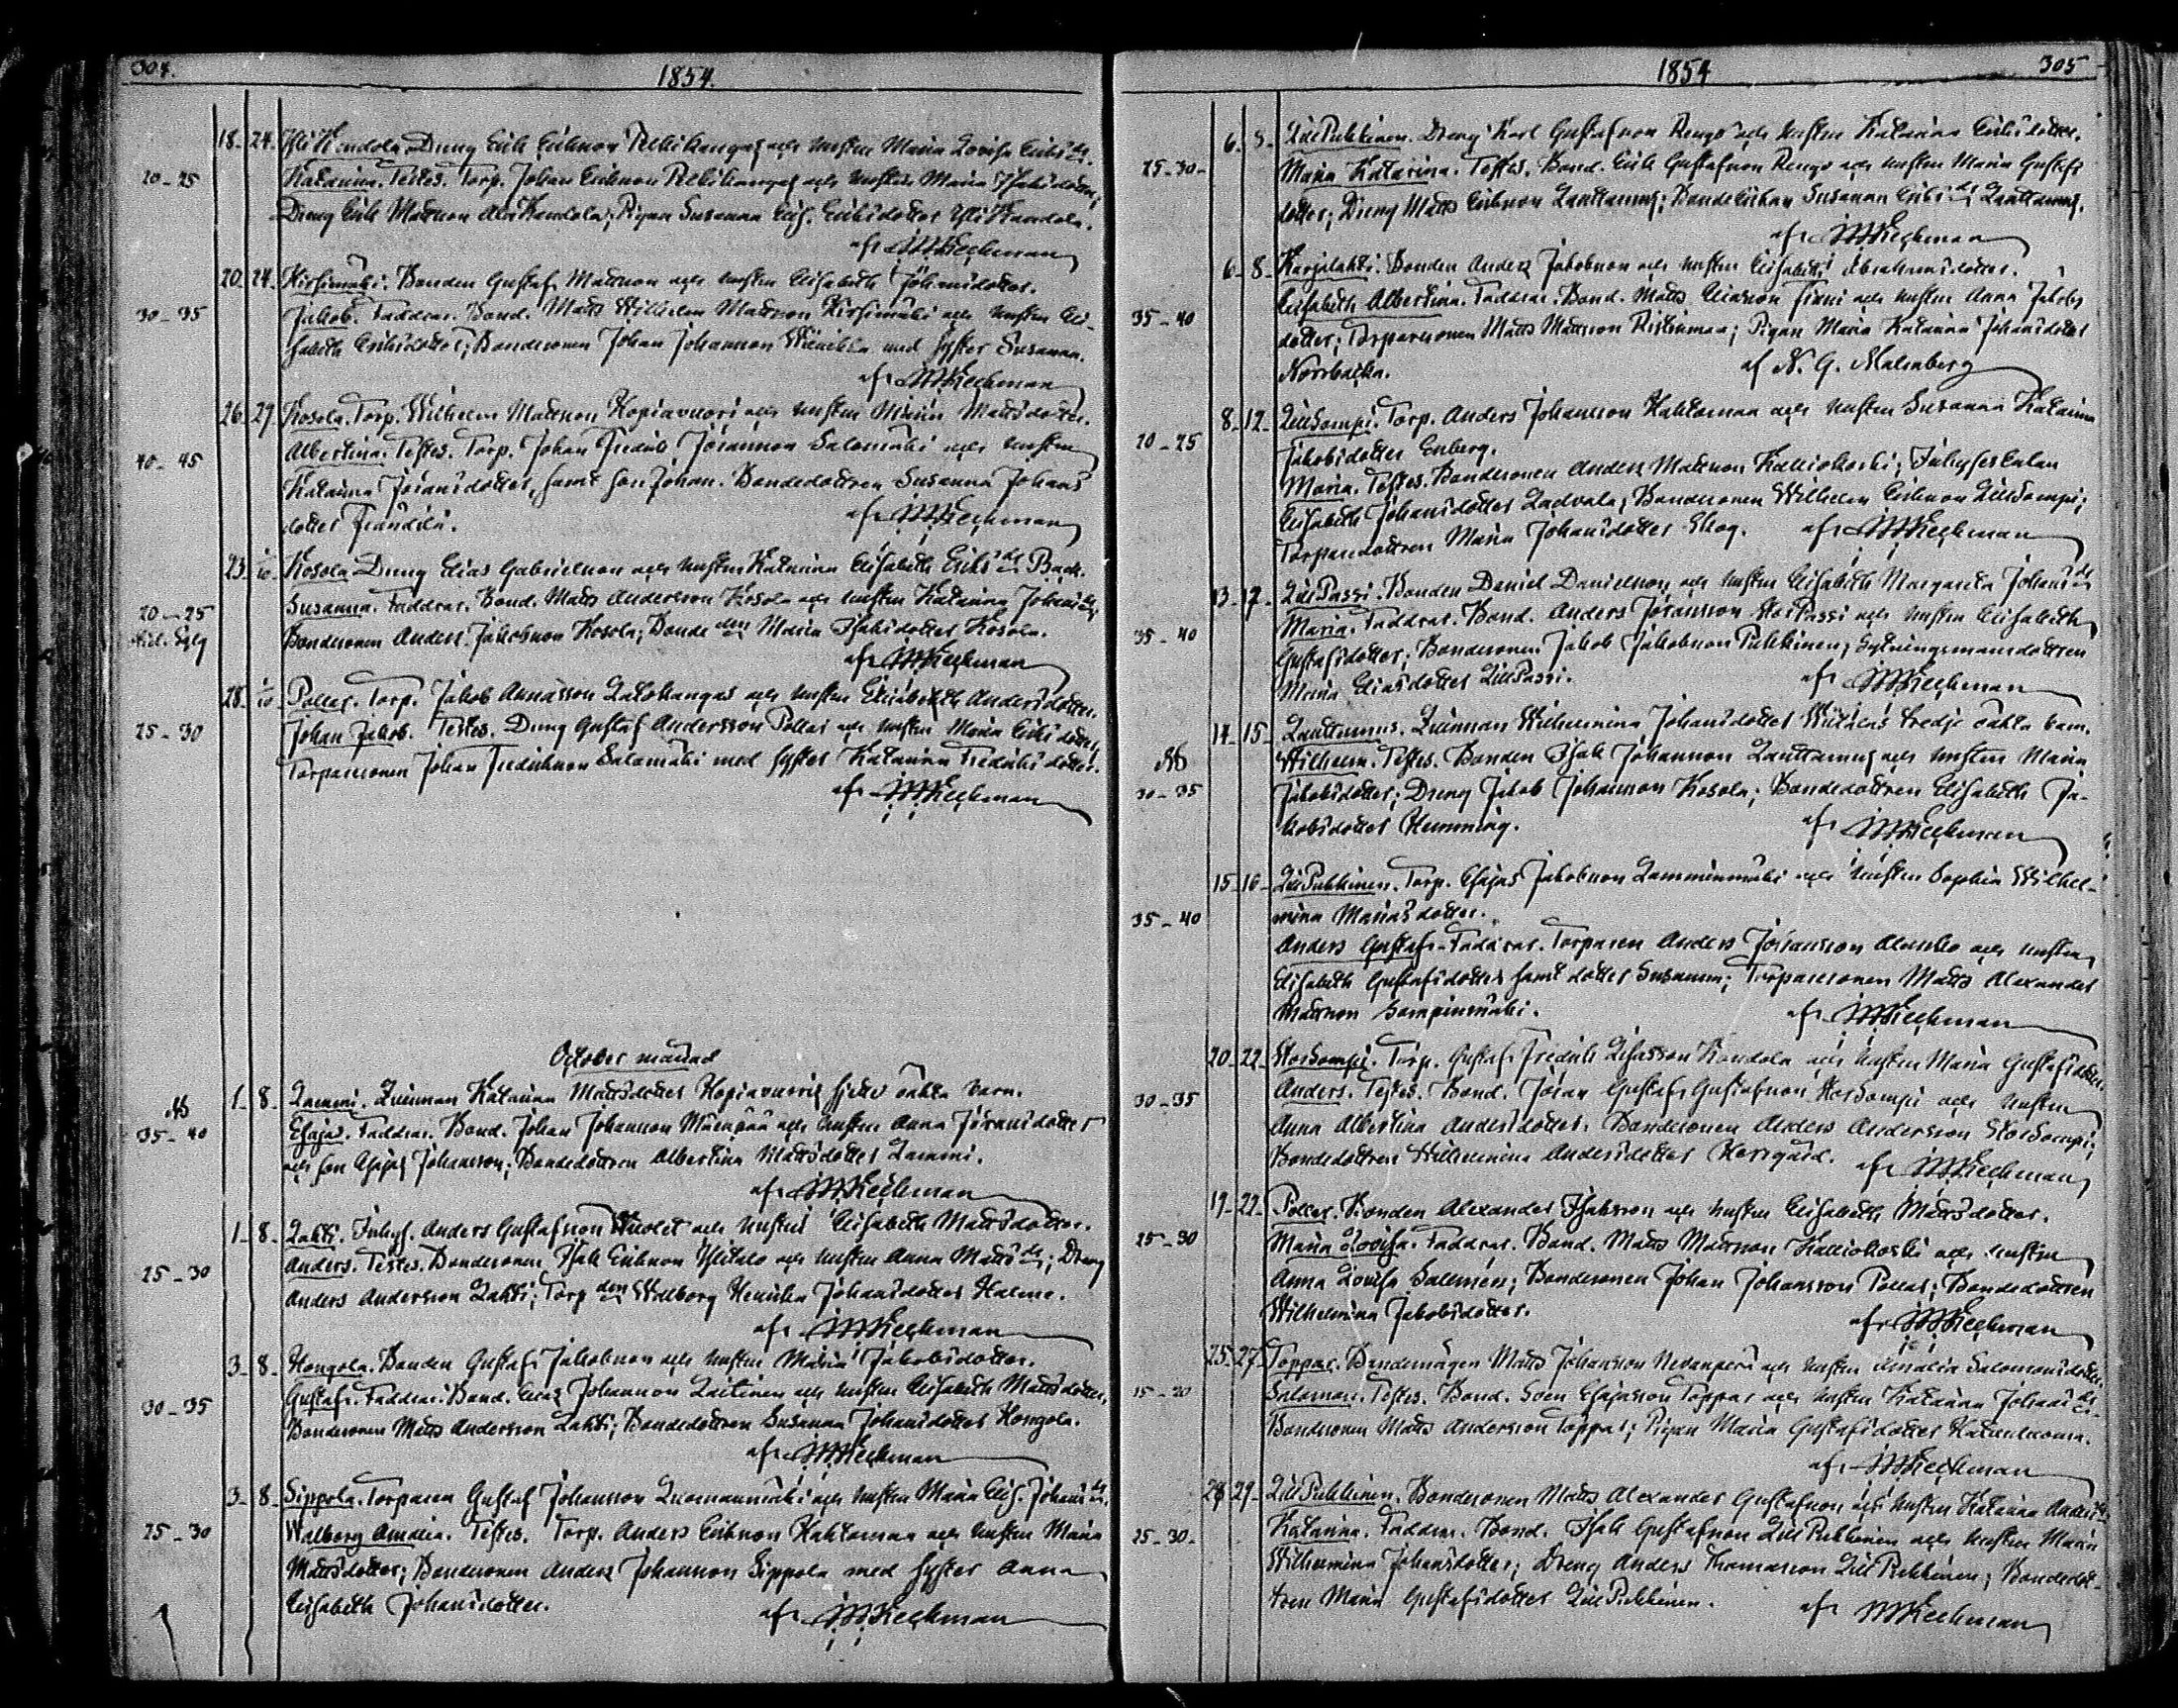 304.
1854.
18. 24. Yli Kandola. Dreng Erik Eriksson Pelkikangas och hustru Maria Lovisa Eriks dr.
20-25 Katarina. Testes. Torp. Johan Eriksson Pelkikangas och hustru Maria Isaksdotter,
Dreng Erik Mattsson Ala Kandola; Pigan Susanna Elis. Eriksdotter Yli Kandola.
af JM Keckman
20. 24. Kirsimäki. Bonden Gustaf Mattsson och hustru Elisabeth Johansdotter.
30-35 Jakob. Faddrar. Bond. Matts Wilhelm Mattsson Kirsimäki och hustru Eli-
sabeth Eriksdotter; Bondesonen Johan Johansson med syster Susanna.
af JM Keckman
26. 29. Kosola. Torp. Wilhelm Mattsson Kopiavuori och hustru Maria Mattsdotter.
40-45 Albertina. Testes. Torp. Johan Fredrik Jöransson Salomäki och hustru
Katarina Jöransdotter, samt son Johan. Bondedottren Susanna Johans
dotter Frändilä.
af JM Keckman
23. 1/10. Kosola Dreng Elias Gabrielsson och hustru Katarina Elisabeth Eriks dr Back.
20-25 Susanna. Faddrar. Bond. Matts Andersson Kosola och hustru Katarina Johans dr;
Bondesonen Anders Jakobsson Kosola; Bonde den Maria Isaksdotter Kosola.
af JM Keckman
28. 1/10. Pollar. Torp. Jakob Annasson Latokangas och hustru Elisabeth Andersdotter.
25-30 Johan Jakob. Testes. Dreng Gustaf Andersson Pollar och hustru Maria Eriksdotter;
Torparesonen Johan Fredriksson Salomäki med syster Katarina Fredriksdotter.
af JM Keckman
October månad
Ab 1. 8. Lammi. Qvinnan Katarina Mattsdotter Kopiavuoris sjette oäkta barn.
35-40 Esajas. Faddrar. Bond. Johan Johansson Mäenpää och hustru Anna Jöransdotter
och son Esajas Johansson; Bondedottren Albertina Mattsdotter Lammi.
af JM Keckman
1. 8. Lahti. Inhys. Anders Gustafsson och hustru Elisabeth Mattsdotter.
25-30 Anders. Testes. Bondesonen Isak Eriksson Ylitalo och hustru Anna Matts dr; Dreng
Anders Andersson Lahti; Torp den Walborg Henrika Johansdotter Halme.
af JM Keckman
3. 8. Hongola. Bonden Gustaf Jakobsson och hustru Maria Jakobsdotter.
30-35 Gustaf. Faddrar. Bond. Elias Johansson Laitinen och hustru Elisabeth Mattsdotter,
Bondesonen Matts Andersson Lahti; Bondedottren Susanna Johansdotter Hongola.
af JM Keckman
3. 8. Sippola. Torparen Gustaf Johansson Luomanmäki och hustru Maria Elis. Johans dr.
25-30 Walborg Amalia. Testes. Torp. Anders Eriksson Kahtamaa och hustru Maria
Mattsdotter; Bondesonen Anders Johansson Sippola med syster Anna
Elisabeth Johansdotter.
af JM Keckman
1854
305
6. 8. Lill Pukkinen. Dreng Karl Gustafsson Rengo och hustru Katarina Eriksdotter.
25-30 Maria Katarina. Testes. Bond. Erik Gustafsson Rengo och hustru Maria Gustafs
dotter; Dreng Matts Eriksson Lauttamus; Bondehustrun Susanna Eriks dr Lauttamus.
af JM Keckman
6. 8. Karjalahti. Bonden Anders Jakobsson och hustru Elisabeth Abrahamsdotter.
35-40 Elisabeth Albertina. Faddrar. Bond. Matts Eliasson Finni och hustru Anna Jakobs
dotter; Torparesonen Matts Mattsson Ristinmaa; Pigan Maria Katarina Johansdotter
Norrbacka.
af N. G. Malmberg
8. 12. Lill Sompi. Torp. Anders Johansson Kahtamaa och hustru Susanna Katarina
20-25 Jakobsdotter Enberg.
Maria. Testes. Bondesonen Anders Mattsson Kalliokoski; Inhyseskulan
Elisabeth Johansdotter Ladvala; Bondesonen Wilhelm Eriksson Lill Sompi;
Torparedottren Maria Johansdotter Skog. af JM Keckman
13. 17. Lill Passi. Bonden Daniel Danielsson och hustru Elisabeth Margareta Johans dr
35-40 Maria. Faddrar. Bond. Anders Jöransson Stor Passi och hustru Elisabeth
Gustafsdotter; Bondesonen Jakob Jakobsson Pukkinen; Sytningsmansdottren
Maria Eliasdotter Lill Passi. af JM Keckman
14. 15. Lauttamus. Qvinnan Wilhelmina Johansdotter Wiitalas tredje oäkta barn.
Ab Wilhelm. Testes. Bonden Isak Johansson Lauttamus och hustru Maria
30-35 Jakobsdotter; Dreng Jakob Johansson Kosola; Bondedottren Elisabeth Ja-
kobsdotter Hemming. af JM Keckman
15. 16. Lill Pukkinen. Torp. Esajas Jakobsson Lamminmäki och hustru Sophia Wilhel-
35-40 mina Mariasdotter.
Anders Gustaf. Faddrar. Torparen Anders Jöransson och hustru
Elisabeth Gustafsdotter samt dotter Susanna; Torparesonen Matts Alexander
Mattsson Sompinmäki. af JM Keckman
20. 22. Stor Sompi. Torp. Gustaf Fredrik Lisasson Kandola och hustru Maria Gustafsdotter.
30-35 Anders. Testes. Bond. Jöran Gustaf Gustafsson Stor Sompi och hustru
Anna Albertina Andersdotter. Bondesonen Anders Andersson Stor Sompi;
Bondedottren Wilhelmina Andersdotter Herrgård. af JM Keckman
19. 22. Pollar. Bonden Alexander Isaksson och hustru Elisabeth Mattsdotter.
25-30 Maria Lovisa. Faddrar. Bond. Matts Mattsson Kalliokoski och hustru
Anna Lovisa Salemén; Bondesonen Johan Johansson Pollar; Bondedottren
Wilhelmina Jakobsdotter.
af JM Keckman
25. 27. Toppar. Bondemågen Matts Johansson Nevanperä och hustru Amalia Salomonsdotter.
15-20 Salomon. Testes. Bond. Sven Esajasson Toppar och hustru Katarina Johans dr.
Bondesonen Matts Andersson Toppar; Pigan Maria Gustafsdotter
af JM Keckman
28. 29. Lill Pukkinen. Bondesonen Matts Alexander Gustafsson och hustru Katarina Anders dr
25-30. Katarina. Faddrar. Bond. Isak Gustafsson Lill Pukkinen och hustru Maria
Wilhelmina Johansdotter; Dreng Anders Thomasson Lill Pukkinen; Bondedot-
tren Maria Gustafsdotter Lill Pukkinen. af JM Keckman